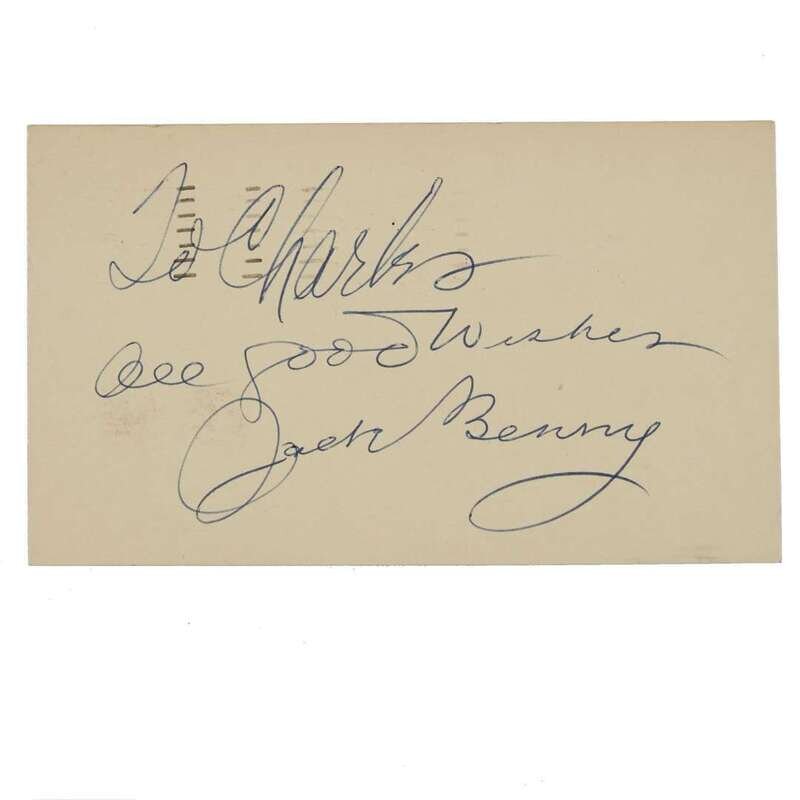 To Charles
All good Wishes
Jack Benny